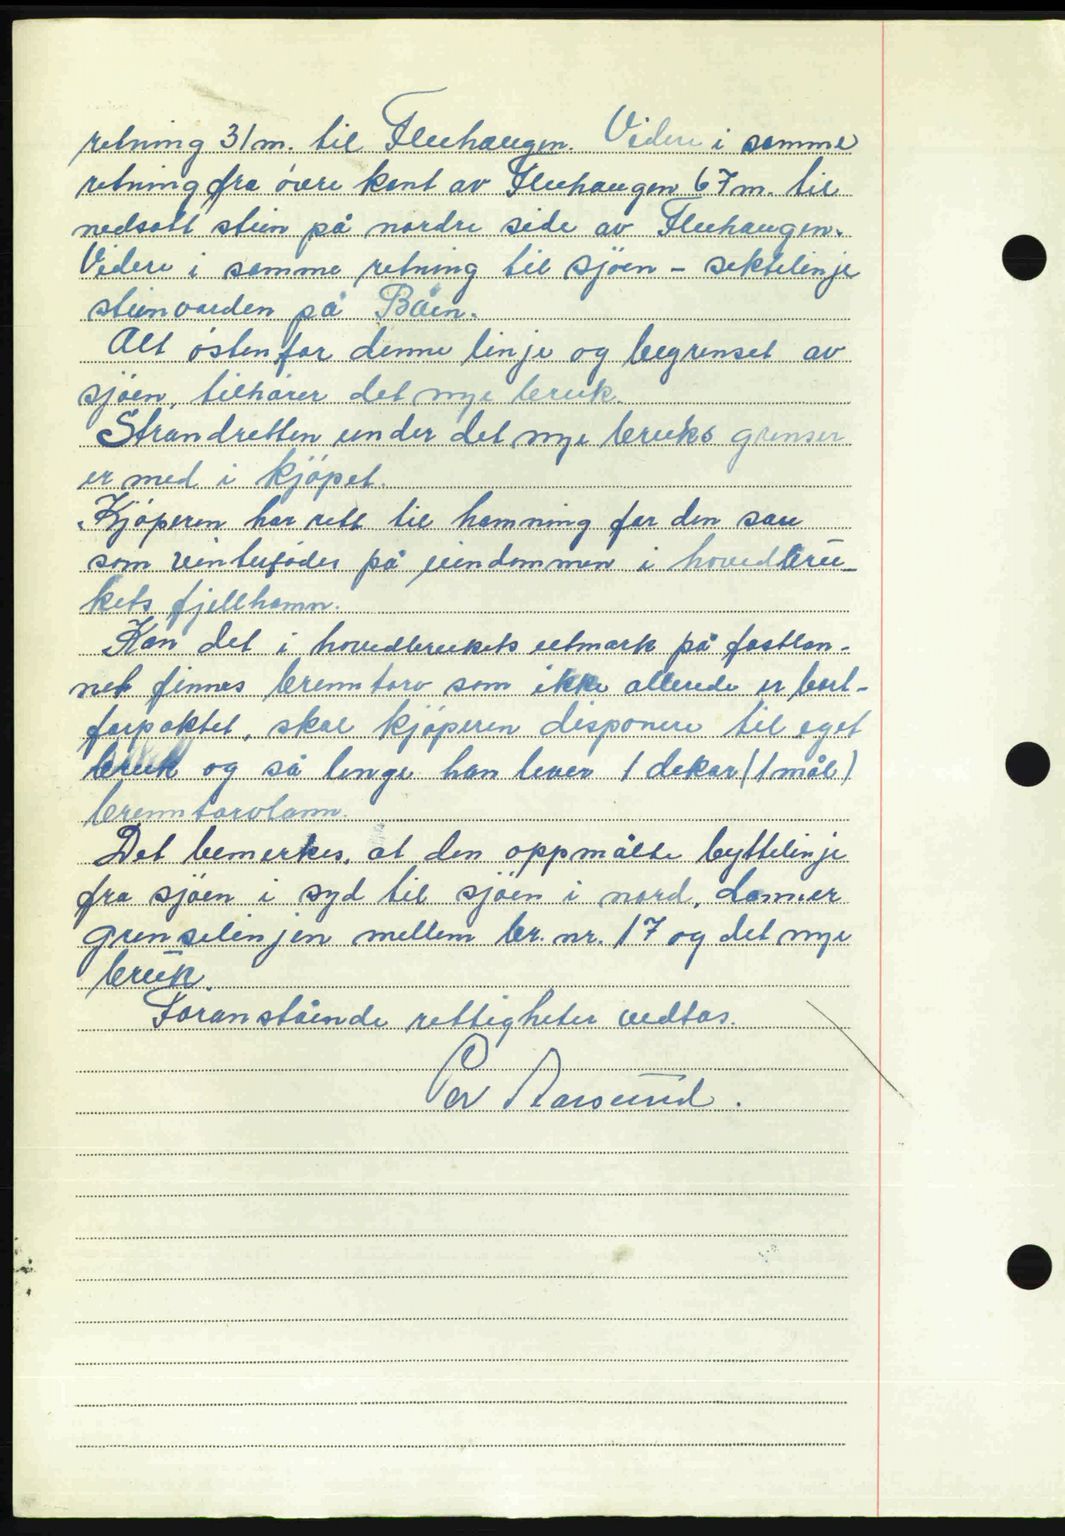 retning 31 m. til Fluhaugen. Videre i samme
retning fra övre kant av Fluhaugen 67 m. til
nedsatt stein på nordre side av Fluhaugen.
Videre i samme retning til sjöen - siktelinje
steinvarden på Båen.
Alt östenfor denne linje og begrenset av
sjöen, tilhörer det nye bruk.
Strandretten under det nye bruks grenser
er med i kjöpet.
Kjöperen har rett til hamning for den sau
som vinterfödes på eiendommen i hovedbru-
kets fjellhamn.
Kan det i hovedbrukets utmark på fastlan-
net finnes brenntorv som ikke allerede er bort-
forpaktet, skal kjöperen disponere til eget
bruk og så lenge han lever 1 dekar (1 mål)
brenntorvlann.
Det bemerkes, at den oppmålte byttelinje
fra sjöen i syd til sjöen i nord, danner
grenselinjen mellem br. nr. 17 og det nye
bruk.
Foranstående rettigheter vedtas.
Per Aarsund.